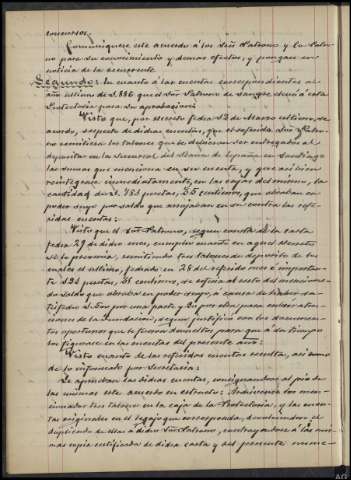 concurso.
Comuníquese este acuerdo á los Sres Patrono y la Patro-
no para su conocimiento y demas efectos, y pongase en
noticia de la recurrente.
Segundo: En cuanto á las cuentas correspondientes al
año último de 1.886 que el Sor Patrono de sangre elevó á esta
Protectoria para su aprobacion:
Visto que, por decreto fecha 12 de Marzo último, se
acordó, respecto de dichas cuentas, que el referido Sor Patro-
no remitiese los talones que se debieron ser entregados al
depositar en la Sucursal del Banco de España en Santiago
las sumas que menciona en su cuenta, y que asi bien
reintegrase inmediatamente, en las cajas del mismo, la
cantidad de 1.781 pesetas, 35 centimos, que obraban en
poder suyo por saldo que arrojaban en su contra las refe-
ridas cuentas:
Visto que el Sor Patrono, segun consta de la carta
fecha 29 de dicho mes, cumplió cuanto en aquel decreto
se le prevenia, remitiendo tres talones de deposito de los
cuales el último, fechado en 28 del referido mes é importan-
te
pesetas, 31 centimos, se refiere al resto del menciona-
do saldo que obraba en poder suyo, á causa de haber sa-
tisfecho
por una parte y
por otra, para
ciones de la fundacion, segun justificó con los documen-
tos oportunos que le fueron devueltos para que á su tiempo
los figurase en las cuentas del presente año:
Visto cuanto de las referidas cuentas resulta, asi como
de lo informado por Secretaria:
Se aprueban las dichas cuentas, consignandose al pie de
las mismas este acuerdo en estracto: Archivense los men-
cionados tres talones en la caja de la Protectoria, y las cuen-
tas originales en el legajo que corresponda, devolviendose el
duplicado de ellas á dicho Sor Patrono, con
á las mis-
mas copia certificada de dicha carta y del presente nume-